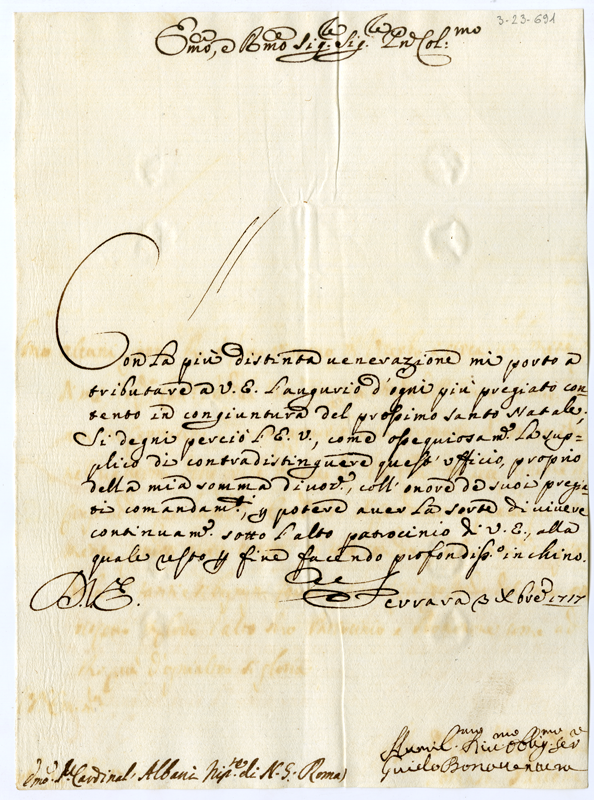 3-23-691
Em.mo, e R.mo Sig.re Sig.re P.ne Col.mo
Con la più distinta venerazione mi porto a
tributare a V. E. l'augurio d'ogni più pregiato con-
tento in congiuntura del prossimo santo Natale;
Si degni perciò l'E. V., come ossequiosam.e la sup-
plico di contradistinguere quest'ufficio, proprio
della mia somma divoz.e, coll'onore de suoi pregia-
ti comandam.ti, p potere aver la sorte di vivere
continuam.e sotto l'alto patrocinio di V. E., alla
quale resto p fine facendo profondiss.o inchino.
D. V. E.
Ferrara 3 Xbre 1717
Humil.mo Riv.mo Oblig.mo Ser.e
Guido Bonaventura
Em.o S.r Cardinal Albani Nip.te di N. S. Roma